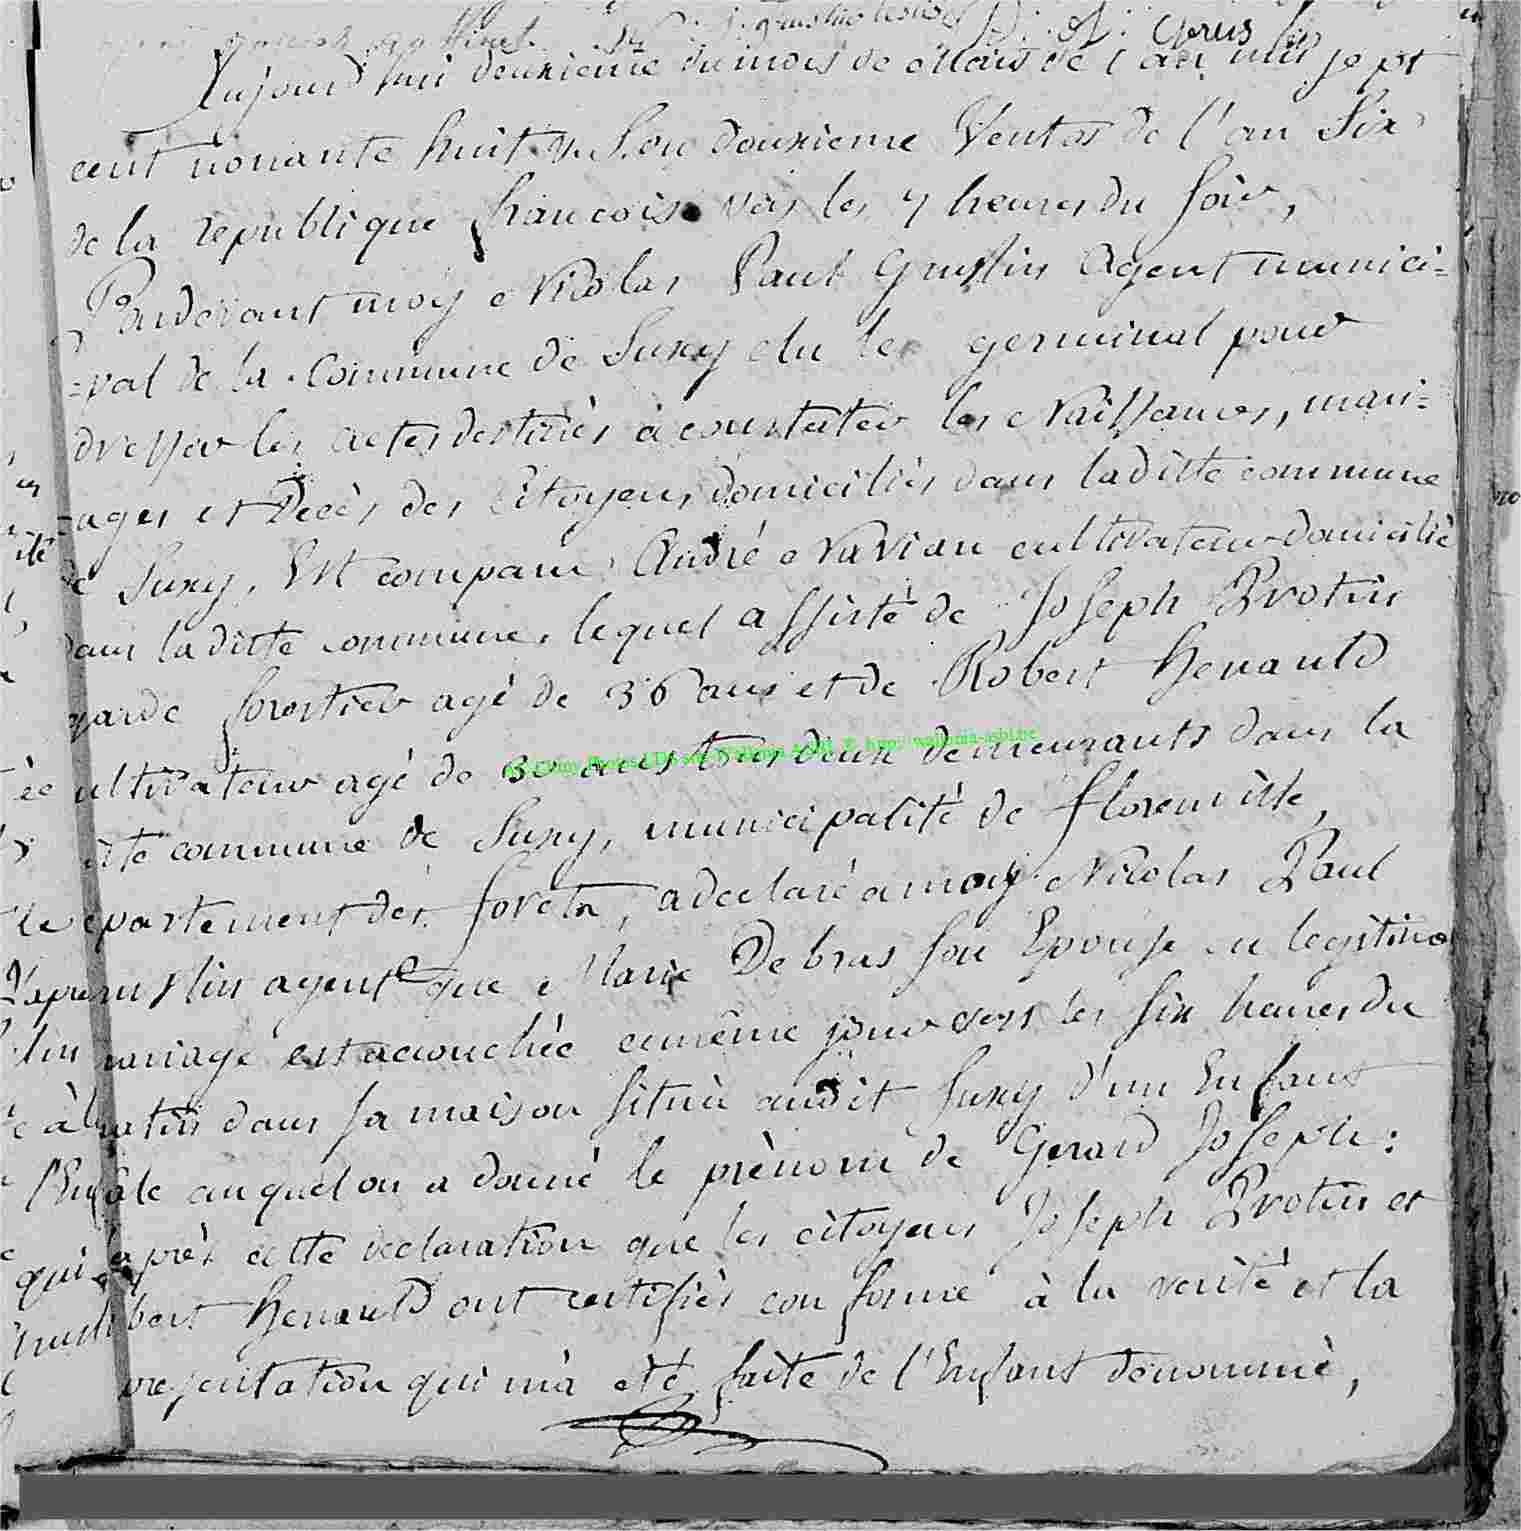 Aujourd'hui deuxieme du mois de Mars de l'an mil sept
cent nonante huit v. S. ou douxieme Ventos de l'an Six
de la republique francois vers les 7 heures du soir,
Pardevant moy Nicolas Paul Gustin Agent munici=
=pal de la Commune de Suxy elu le germinal pour
dresser les actes destinés à constater les Naissances, mari=
=ages et Decès des Citoyens domiciliés dans laditte commune
de Suxy, Est comparu André Navian cultivateur domicilié
dans laditte commune, lequel assisté de Joseph Protin
garde forestier agé de 36 ans et de Robert Henauld
cultivateur agé de 30 ans tous deux demeurants dans la
ditte commune de Suxy, municipalité de florenville,
departement des forets, a declaré a moy Nicolas Paul
agent que Marie Debras son Epouse en legitime
mariage est acouchée cemême jour vers les six heures du
matin dans sa maison situèe audit Suxy d'un Enfant
mâle auquel on a donné le prènom de Gerard Joseph:
après cette declaration que les citoyens Joseph Protin et
Robert Henauld ont certifiès conforme à la verité et la
presentation qui m'a eté faite de l'Enfant denommè,
Arch Chiny Photos LDS sur Wallonia ASBL © http://wallonia-asbl.be